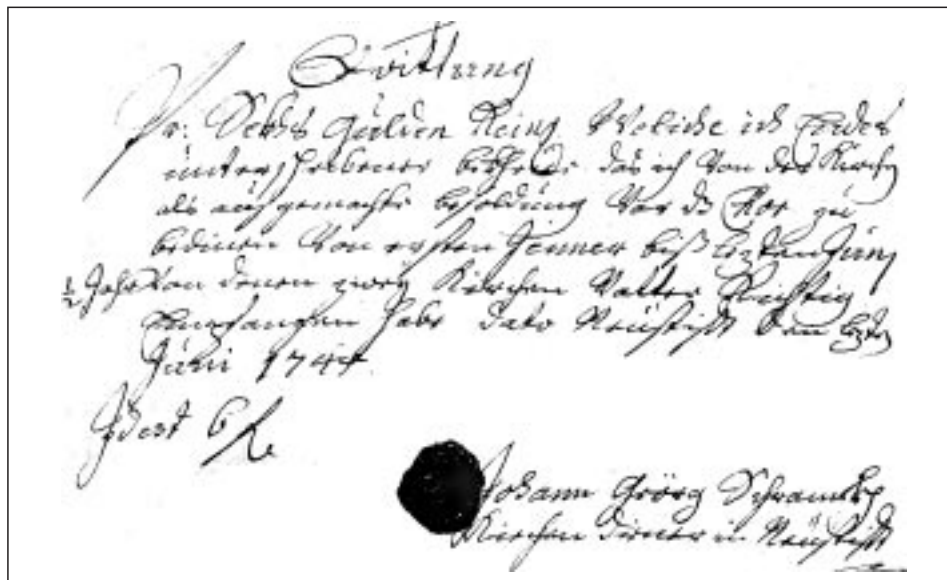 Quittung
Pr: Sechs Gülden Rein. Weliche ich Endes
unterschribener bescheine das ich von der Kirchen
als aus gemachte besoldung Vor da Chor zu
bedinen Von ersten Jenner biß lezten Juni
1/2 Jahr Von denen zwey Kirchen Vatter Richtig
Empfangen habe Dato Neüstifft den lezten
Juni 1744
Id est 6 f
Johann Görg
Kirchen diener in Neüstifft